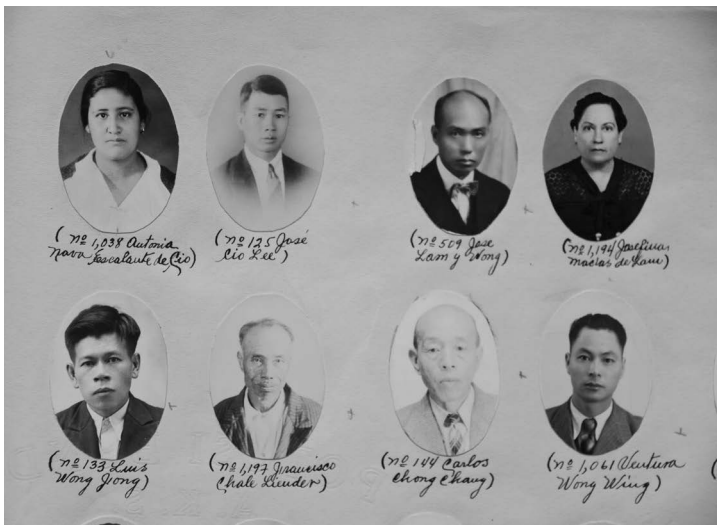 (nº 1,038 Antonia
Nava Escalante de Cio)
(nº 125 José
Cio Lee)
(nº 509 Jose
Lam y Wong)
(nº 1,194 Josefina
Macias de Lam)
(nº 133 Luis
Wong Jiong)
(nº 1,197 Francisco
Chale Liender)
(nº 144 Carlos
Chong Chang)
(nº 1,061 Ventura
Wong Wing)